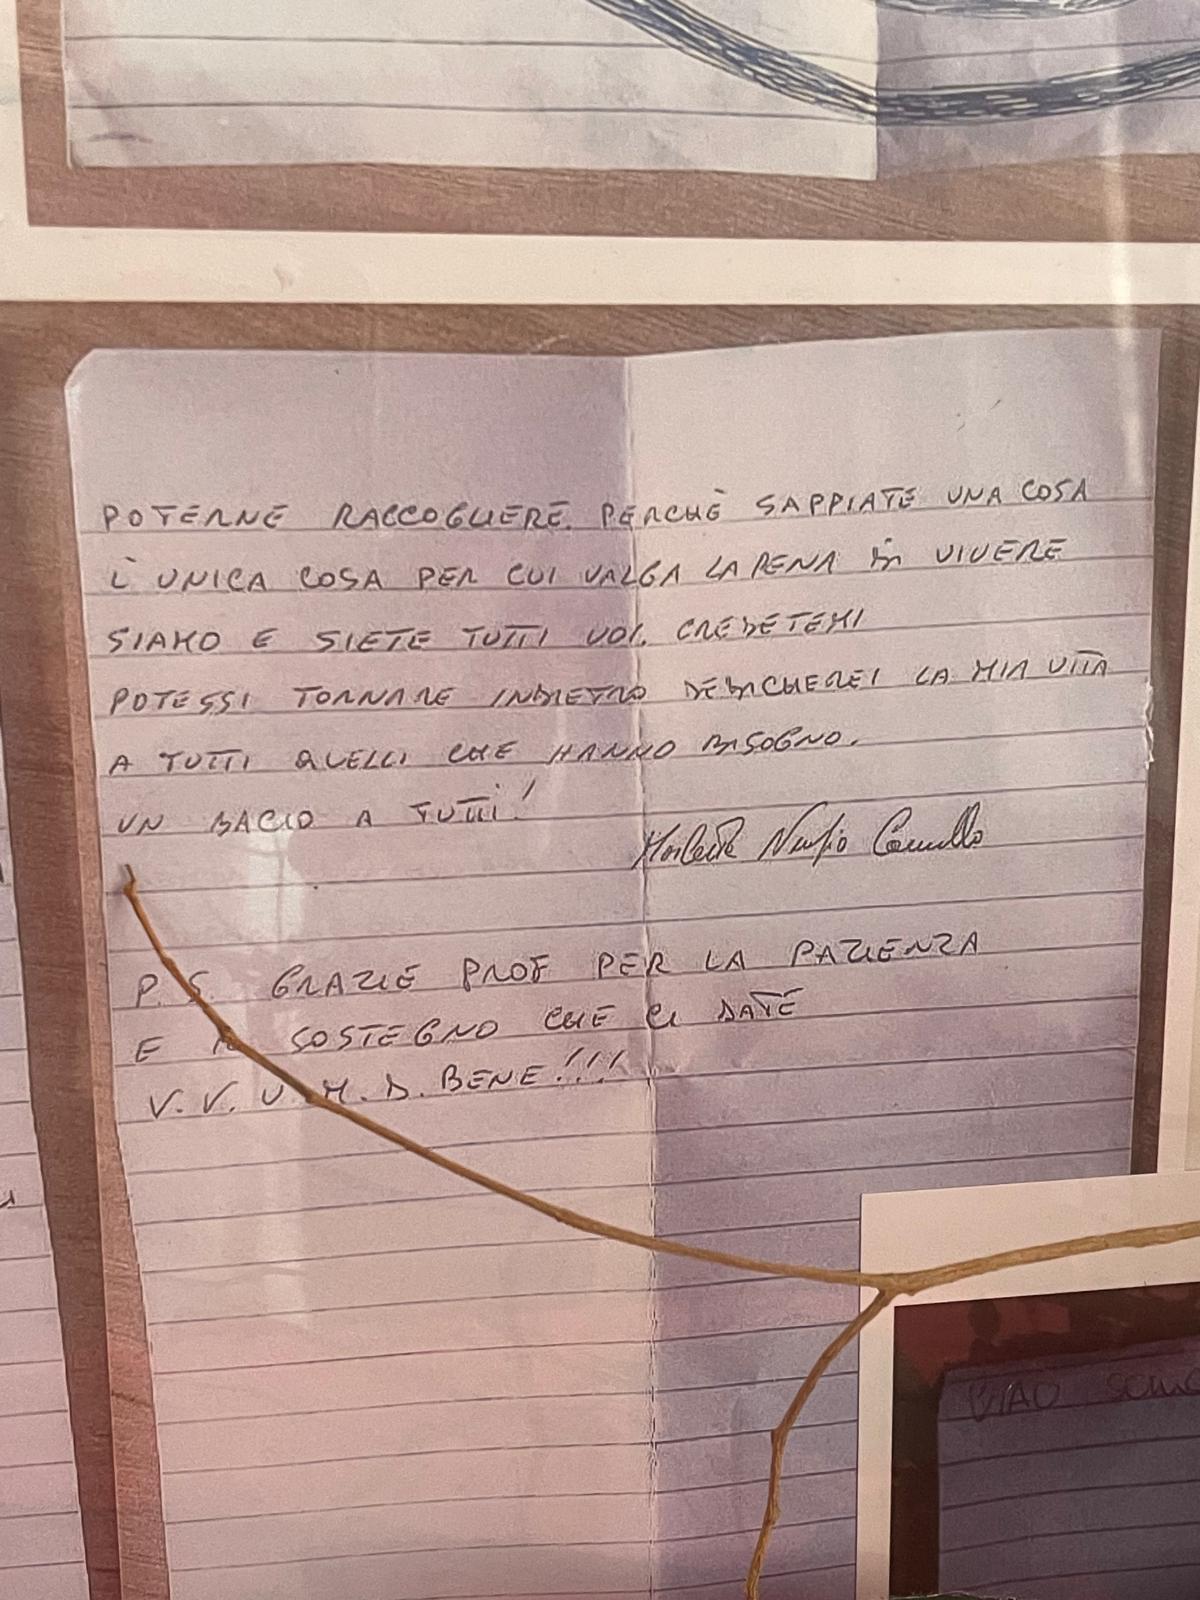 POTERNE RACCOGLIERE. PERCHÈ SAPPIATE UNA COSA
L'UNICA COSA PER CUI VALGA LA PENA DI VIVERE
SIAMO E SIETE TUTTI VOI. CREDETEMI
POTESSI TORNARE INDIETRO DEDICHEREI LA MIA VITA
A TUTTI QUELLI CHE HANNO BISOGNO.
UN BACIO A TUTTI!
P.S. GRAZIE PROF PER LA PAZIENZA
E IL SOSTEGNO CHE CI DATE
V.V.U.M.D.BENE!!!
CIAO